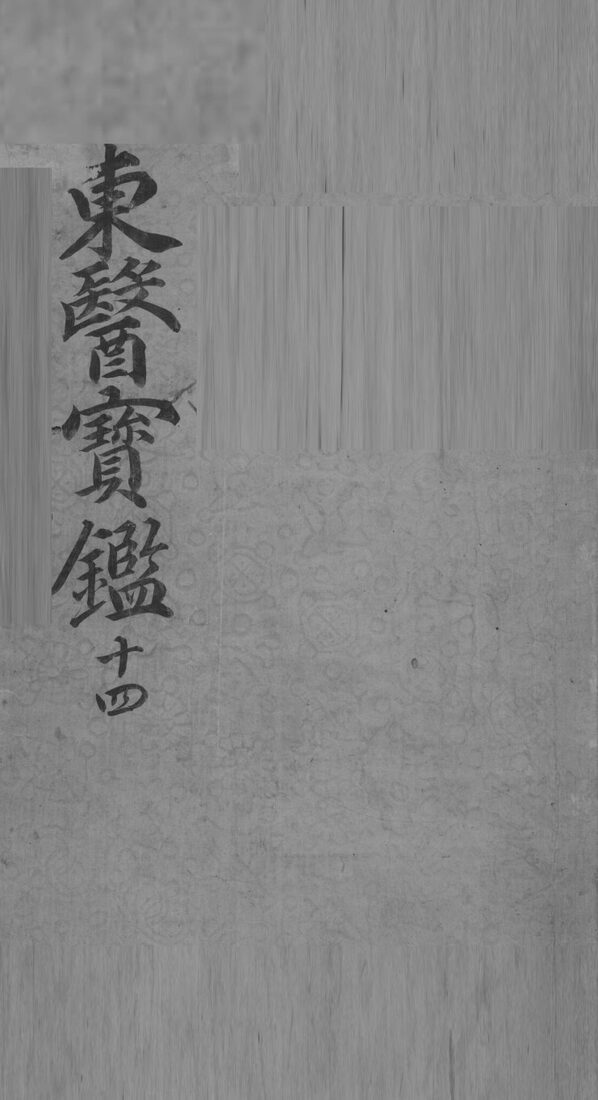 東醫寶鑑 十四